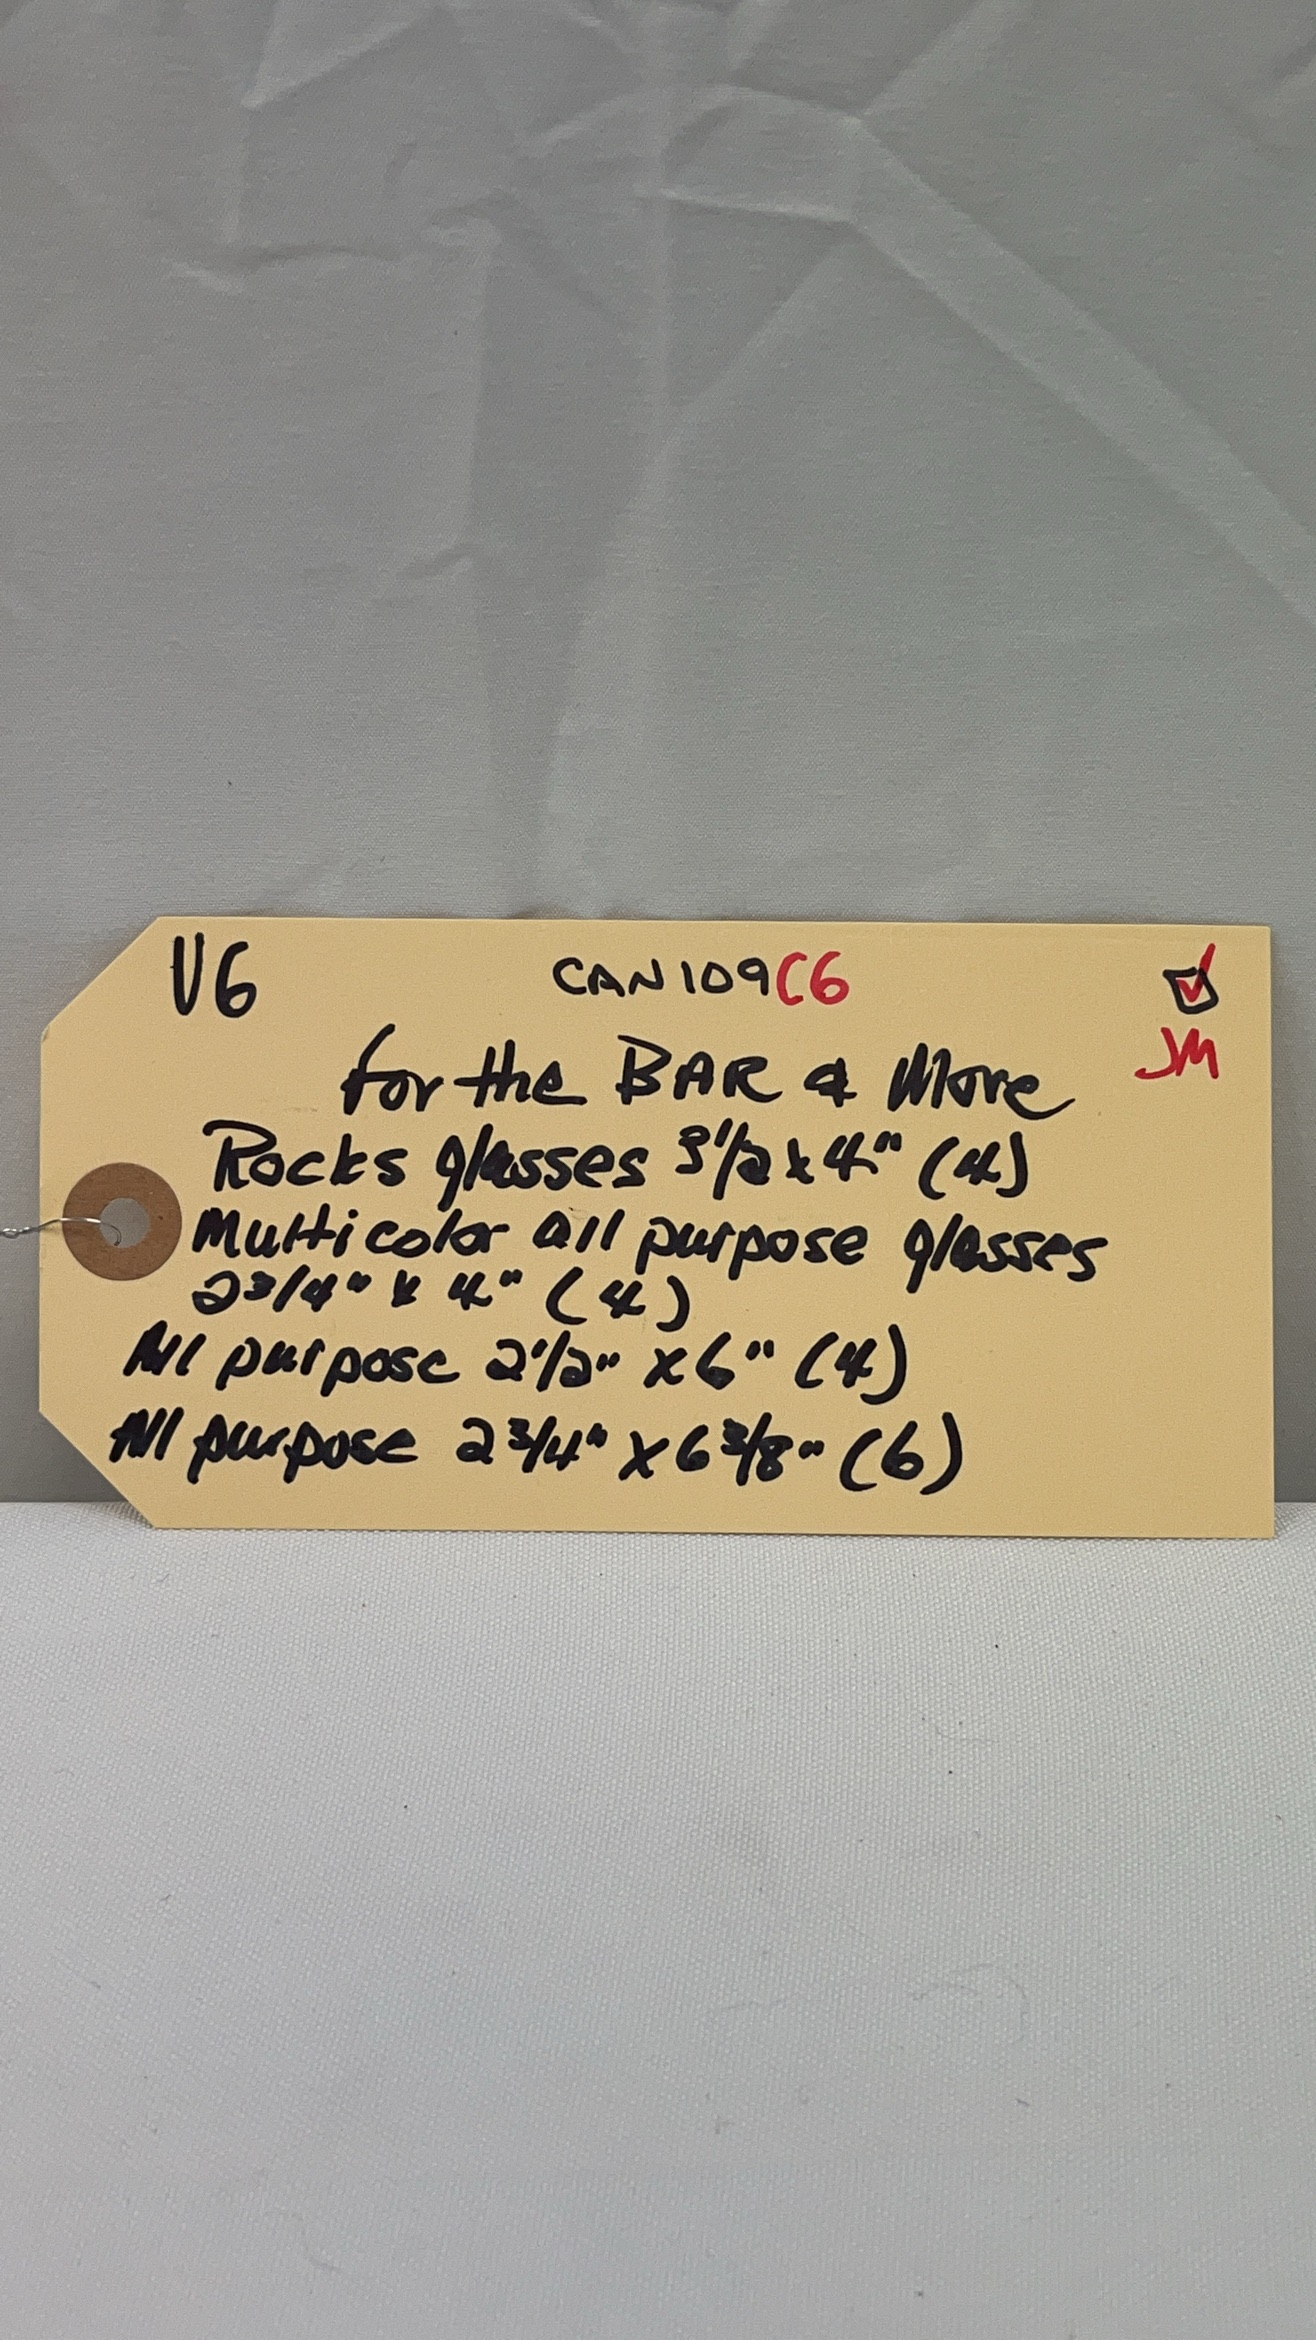 V6 CAN109C6
JM
for the BAR & More
Rocks glasses 3 1/2 x 4" (4)
Multicolor all purpose glasses
2 3/4" x 4" (4)
All purpose 2 1/2" x 6" (4)
All purpose 2 3/4" x 6 3/8" (6)